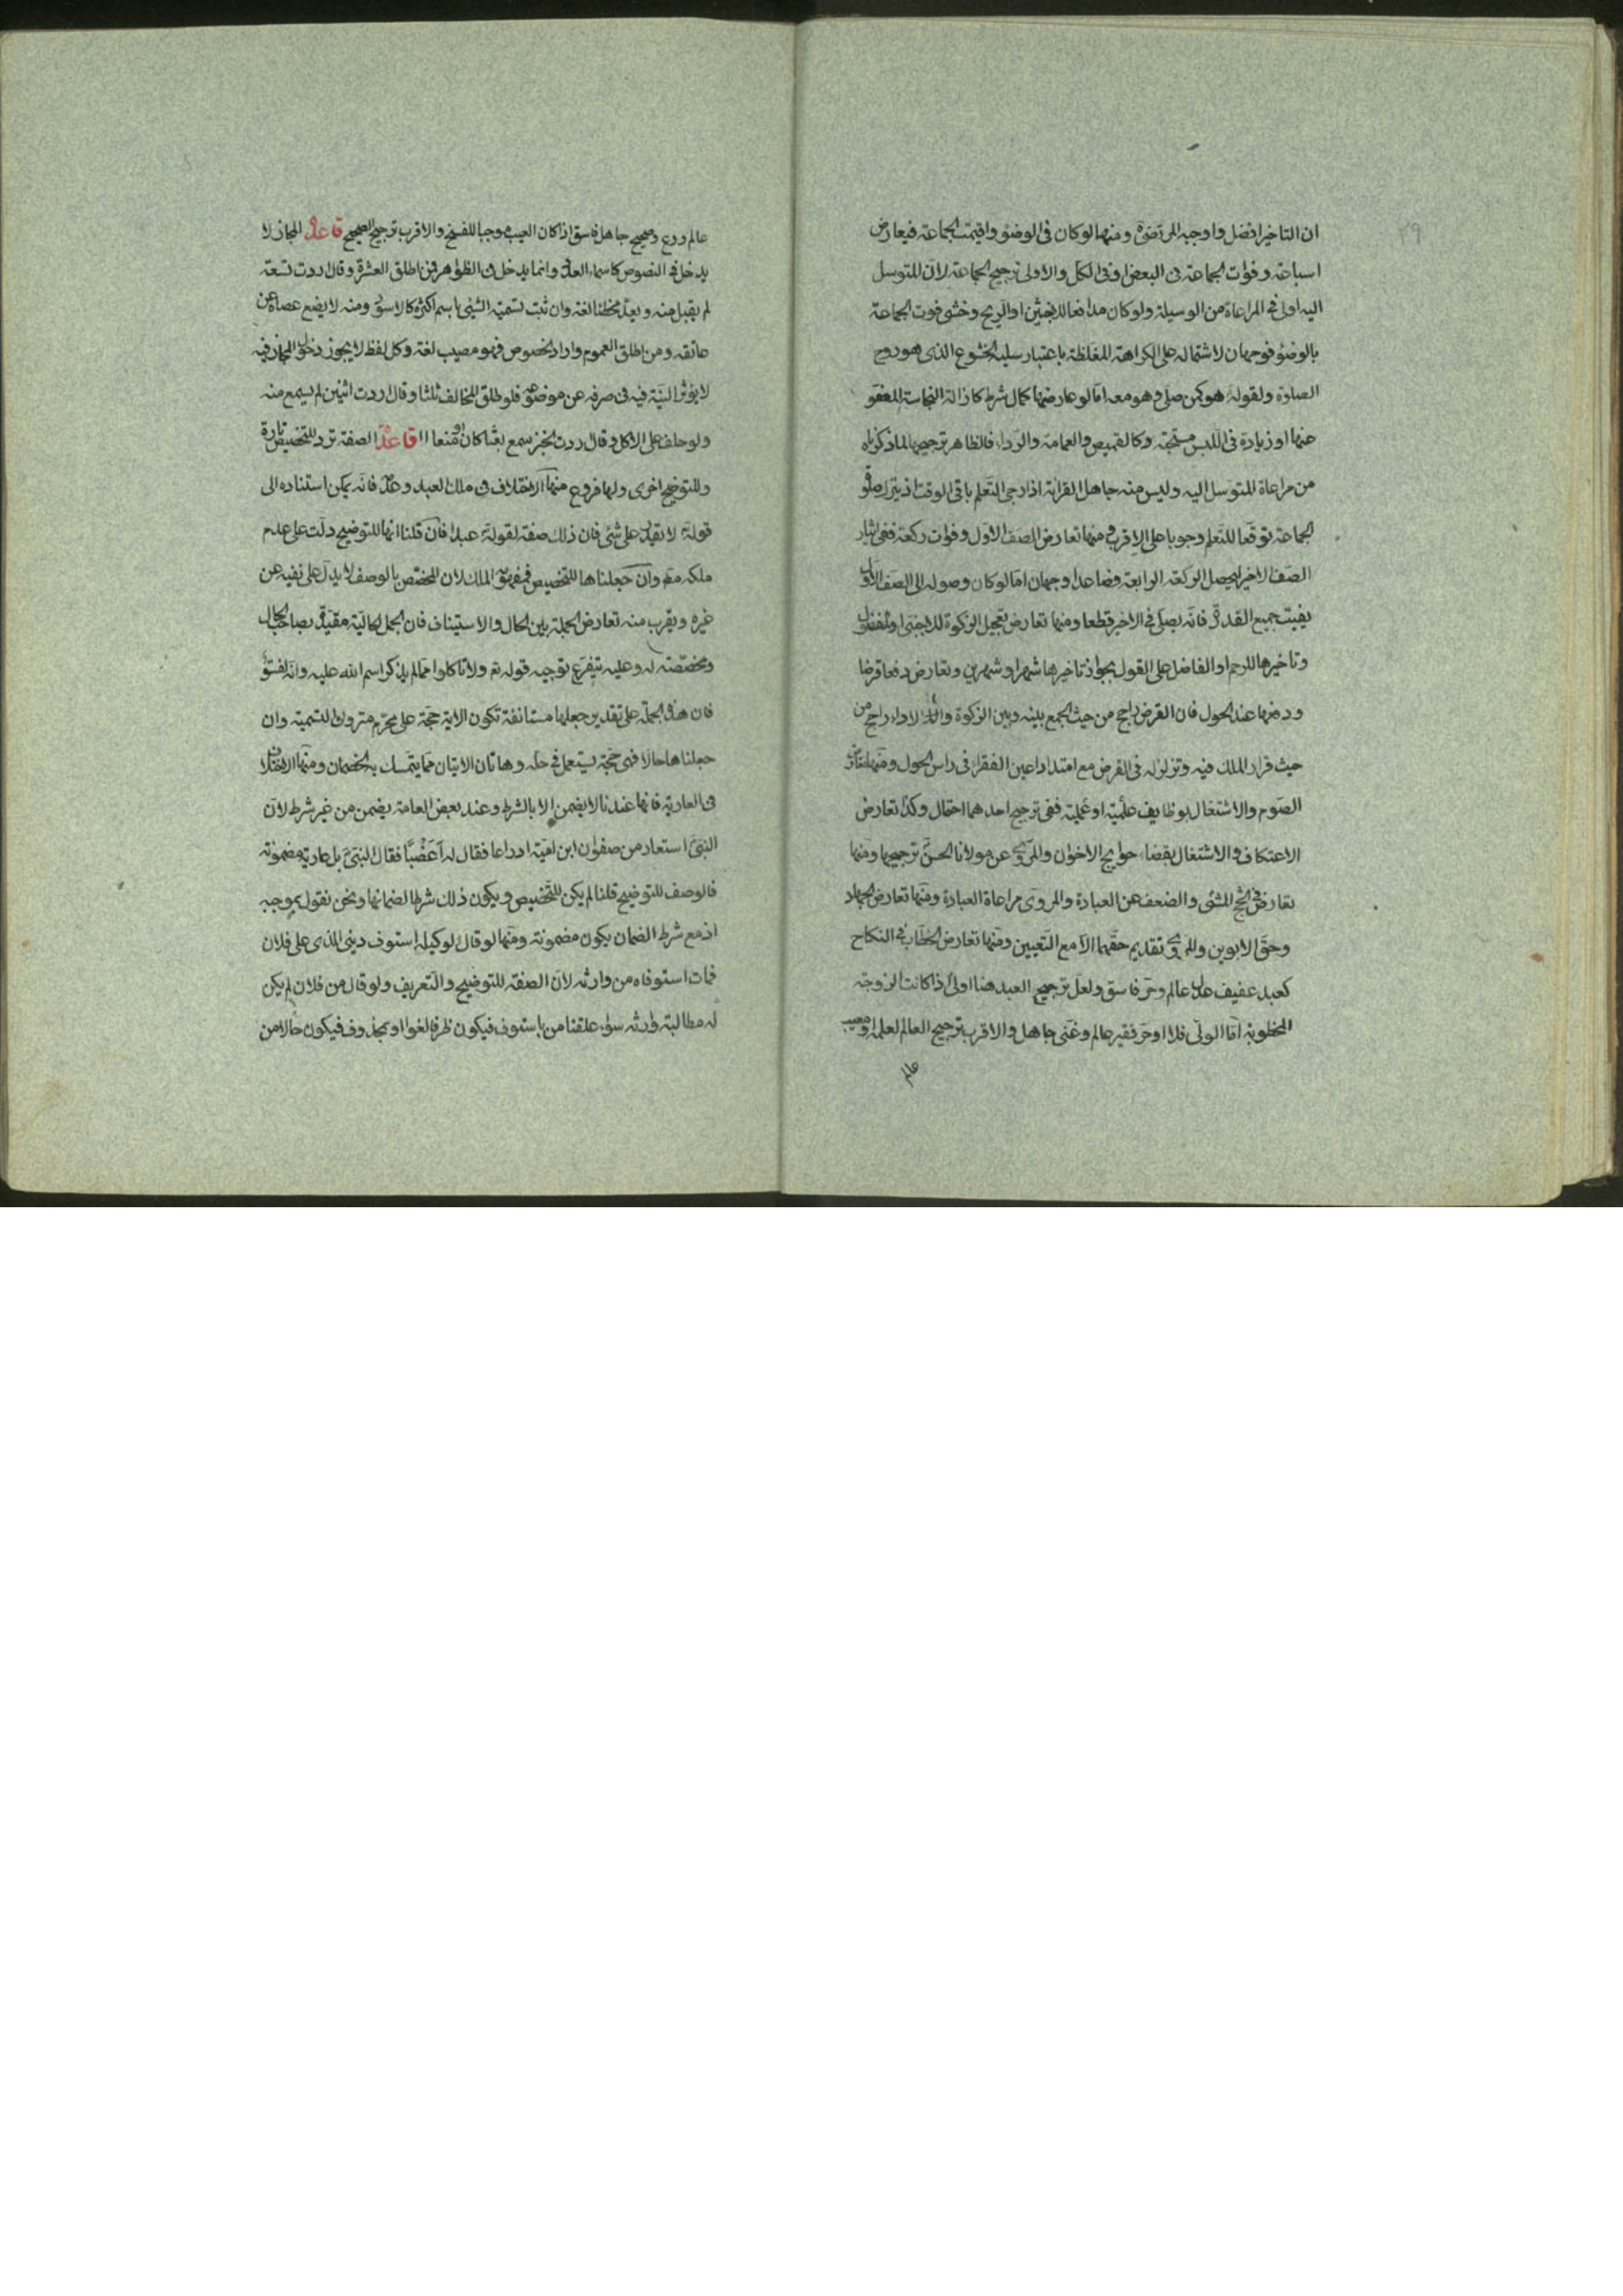 ان التاخير افضل واوجبه المرتضى ومنها لو كان في الوضوء واقيمت الجماعة فيعارض
اسباغه وفوات الجماعة في البعض او في الكل والاولى ترجيح الجماعة لان المتوسل
اليه اولى في المراعاة من الوسيلة ولو كان مدافعا للاخبثين او الريح وخشي فوت الجماعة
بالوضوء فوجهان لاشتماله على الكراهة المغلظة باعتبار سلبه الخشوع الذي هو روح
الصلوة ولقوله هو كمن صلى وهو معه اما لو عارضها كمال شرط كازالة النجاسة المعفو
عنها او زيادة في اللبس مستحبة وكالقميص والعمامة والرداء فالظاهر ترجيحها لما ذكرناه
من مراعاة المتوسل اليه وليس منه جاهل القرائة اذا رجى التعلم باقي الوقت اذ يترك صلوة
الجماعة توقعا للتعلم وجوبا على الاقرب ومنها تعارض الصف الاول وفوات ركعة ففي ايثار
الصف الاخير ليحصل الركعة الرابعة فصاعدا وجهان اما لو كان وصوله الى الصف الاول
يفيت جميع القدوة فانه يصلي في الاخير قطعا ومنها تعارض تعجيل الزكوة للاجنبي او المفضول
وتاخيرها للرحم او الفاضل على القول بجواز تاخيرها شهرا وشهرين وتعارض دفعها قرضا
ودفعها عند الحول فان القرض راجح من حيث الجمع بينه وبين الزكوة والاداء راجح من
حيث قرار الملك فيه وتزلزله في القرض مع امتداد اعين الفقراء في راس الحول ومنها تعارض
الصوم والاشتغال بوظايف علمية او عملية ففي ترجيح احدهما احتمال وكذا تعارض
الاعتكاف والاشتغال بقضاء حوايج الاخوان والمروي عن مولانا الحسن ترجيحها ومنها
تعارض في الحج المشي والضعف عن العبادة والمروي مراعاة العبادة ومنها تعارض الجهاد
وحق الابوين والمروي تقديم حقهما الا مع التعيين ومنها تعارض الخطاب في النكاح
كعبد عفيف عدل عالم وحر فاسق ولعل ترجيح العبد هنا اولى اذا كانت الزوجة
المخطوبة اما الولي فلا او حر فقير عالم وغني جاهل والاقرب ترجيح العالم لعلمه او معيب
عالم
عالم ورع وصحيح جاهل فاسق اذا كان العيب موجبا للفسخ والاقرب ترجيح الصحيح قاعدة المجاز لا
يدخل في النصوص كاسماء العدد وانما يدخل في الظواهر فمن اطلق العشرة وقال اردت تسعة
لم يقبل منه ويعد مخطئا لغة وان ثبت تسمية الشيء باسم اكثره كالاسود ومنه لا يضع عصاه عن
عاتقه ومن اطلق العموم واراد الخصوص فهو مصيب لغة وكل لفظ لا يجوز دخول المجاز فيه
لا يؤثر النية فيه في صرفه عن موضوعه فلو طلق المخالف ثلثا وقال اردت اثنين لم يسمع منه
ولو حلف على الاكل وقال اردت الخبز سمع بعثا كان او منعا قاعدة الصفة ترد للتخصيص تارة
وللتوضيح اخرى ولها فروع منها الاختلاف في ملك العبد وعدمه فانه يمكن استناده الى
قوله لا يقدر على شئ فان ذلك صفة لقوله عبدا فان قلنا انها للتوضيح دلت على عدم
ملكه مطلقا وان جعلناها للتخصيص فمفهومه الملك لان المختص بالوصف لا يدل على نفيه عن
غيره ويقرب منه تعارض الجملة بين الحال والاستيناف فان الجمل الحالية مقيدة بصاحب الحال
ومخصصة له وعليه يتفرع توجيه قوله تع ولا تاكلوا مما لم يذكر اسم الله عليه وانه لفسق
فان هذه الجملة على تقدير جعلها مستانفة تكون الاية حجة على محرم متروك التسمية وان
جعلناها حالا فهي حجة يستعمل في حله وهاتان الايتان مما يتمسك به الخصمان ومنها الاختلاف
في العارية فانها عندنا لا يضمن الا بالشرط وعند بعض العامة يضمن من غير شرط لان
النبي استعار من صفوان ابن امية ادراعا فقال له اغضبا فقال النبي بل عارية مضمونة
فالوصف للتوضيح قلنا لم يكن للتخصيص ويكون ذلك شرطا لضمانها ونحن نقول بموجبه
اذ مع شرط الضمان يكون مضمونة ومنها لو قال لوكيله استوف ديني الذي على فلان
فمات استوفاه من وارثه لان الصفة للتوضيح والتعريف ولو قال من فلان لم يكن
له مطالبة وارثه سواء علقنا من باستوف فيكون ظرفا لغوا او بمحذوف فيكون حالا من